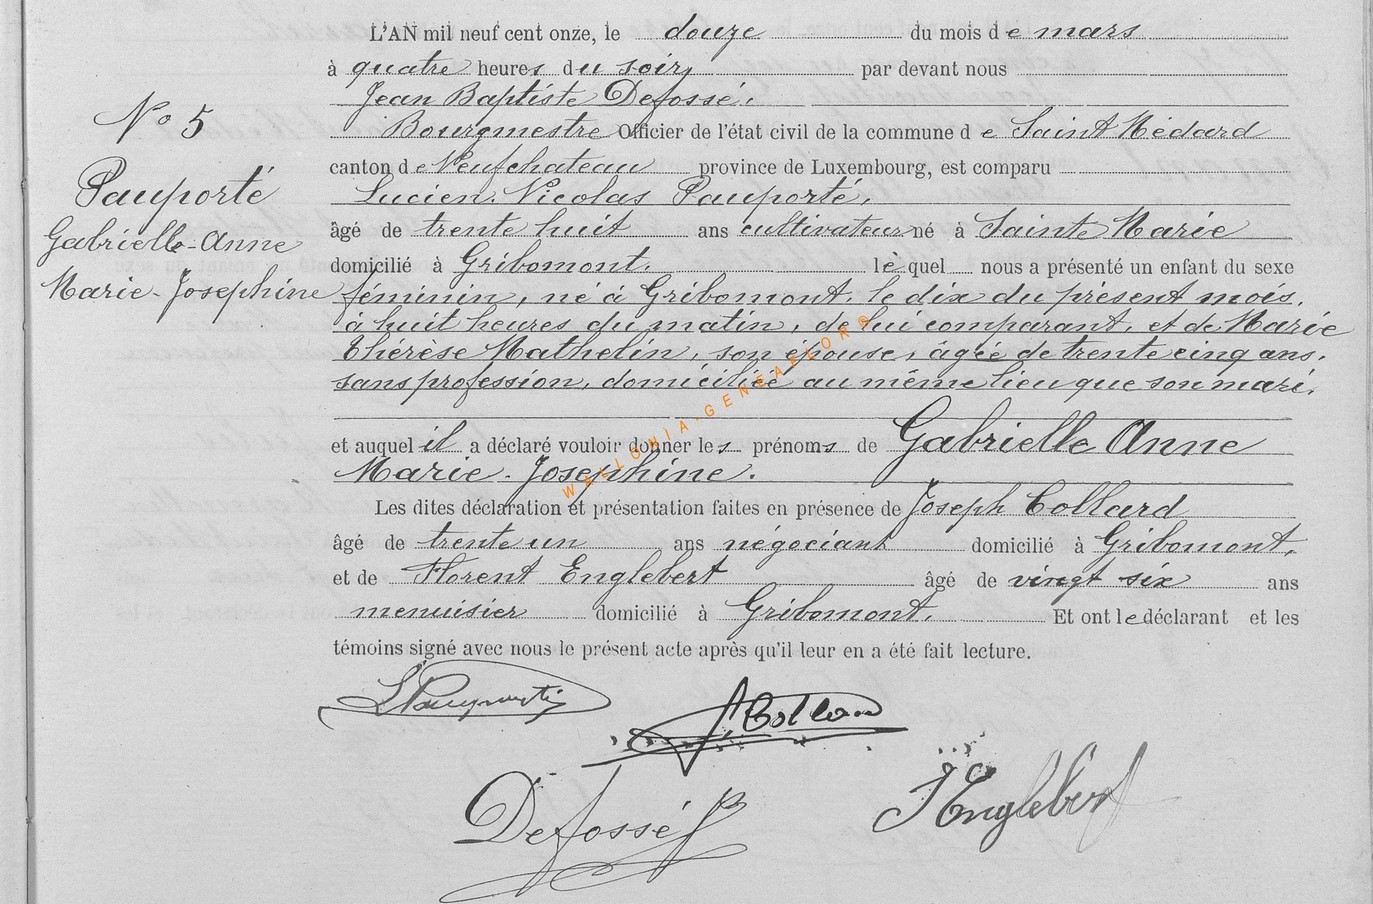 L'AN mil neuf cent onze, le douze du mois de mars
à quatre heures du soir, par devant nous
Jean Baptiste Defossé,
Bourgmestre Officier de l'état civil de la commune de Saint Médard
canton de Neufchateau province de Luxembourg, est comparu
Lucien Nicolas Pauporté,
âgé de trente huit ans cultivateur né à Sainte Marie
domicilié à Gribomont. lequel nous a présenté un enfant du sexe
féminin, né à Gribomont, le dix du présent mois,
à huit heures du matin, de lui comparant, et de Marie
Thérèse Mathelin, son épouse, âgée de trente cinq ans,
sans profession, domiciliée au même lieu que son mari,
et auquel il a déclaré vouloir donner les prénoms de Gabrielle Anne
Marie-Josephine.
Les dites déclaration et présentation faites en présence de Joseph Collard
âgé de trente un ans négociant domicilié à Gribomont,
et de Florent Englebert âgé de vingt six ans
menuisier domicilié à Gribomont. Et ont le déclarant et les
témoins signé avec nous le présent acte après qu'il leur en a été fait lecture.
N° 5
Pauporté
Gabrielle-Anne
Marie-Josephine
L Pauporté
J Collard
Defossé JB
F Englebert
WALLONIA-GENEALLORG